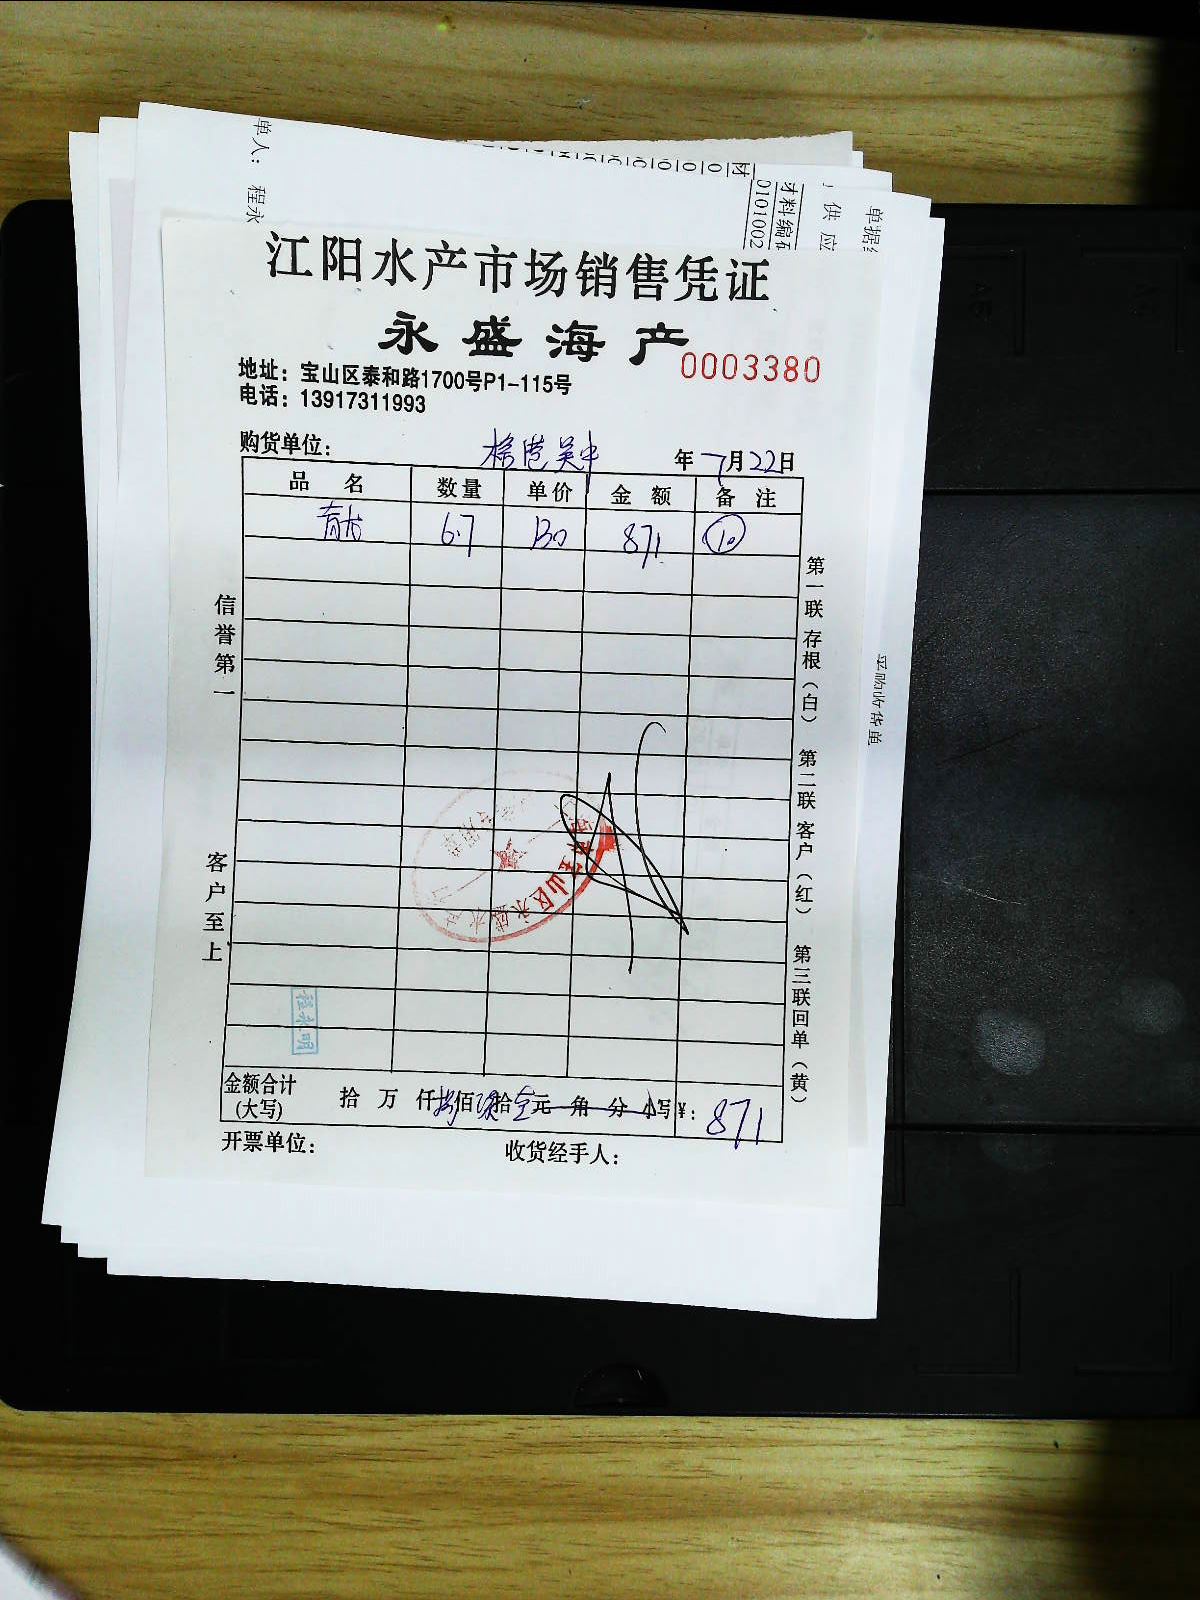 单人： 程永
材料编码
0101002
供应
单据
江阳水产市场销售凭证
永盛海产
0003380
地址：宝山区泰和路1700号P1-115号
电话：13917311993
购货单位： 年 7月22日
品名 数量 单价 金额 备注
6.7 130 871 10
信誉第一
客户至上
第一联 存根（白） 第二联 客户（红） 第三联 回单（黄）
采购收货单
程永明
金额合计（大写） 拾 万 仟 捌佰 柒拾 壹元 角 分 小写￥：871
开票单位： 收货经手人：